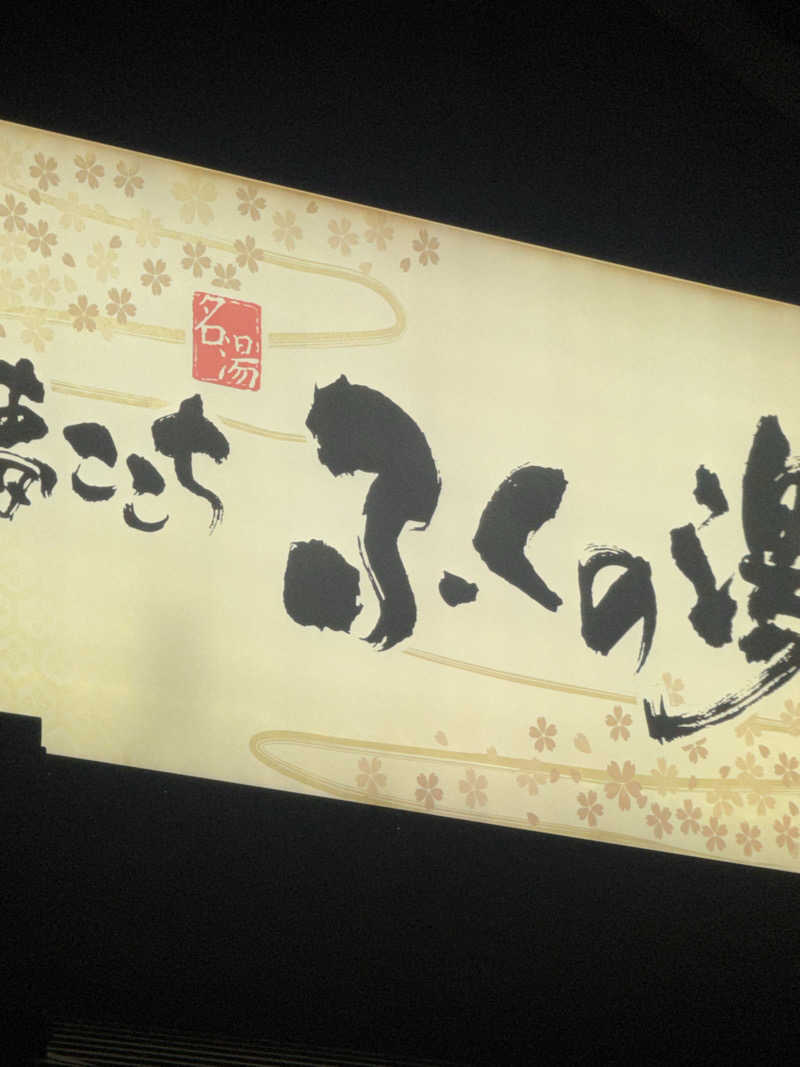 名湯
夢ごこち ふくの湯